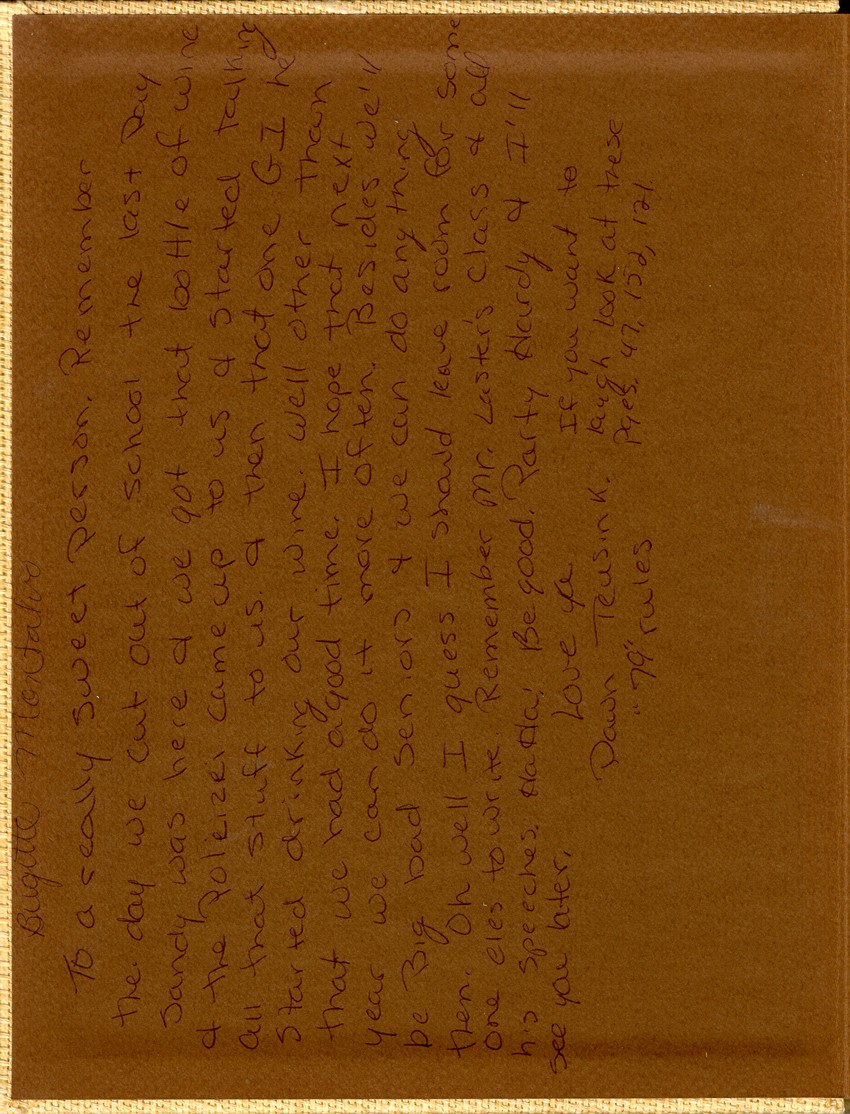 Brigitte Montalvo
To a really sweet person. Remember
the day we cut out of school the last Day
Sandy was here & we got that bottle of wine
& the Poleizei came up to us & started talking
all that stuff to us. & then that one GI he
Started drinking our wine. Well other than
that we had a good time. I hope that next
year we can do it more often. Besides we'll
be Big bad seniors & we can do anything
then. Oh well I guess I should leave room for some
one eles to write. Remember Mr. Laster's class & all
his speeches. HaHa! Be good. Party Hardy & I'll
see you later.
Love ya
Dawn Teusink.
"79" rules
If you want to
laugh look at these
pges. 47, 152, 121